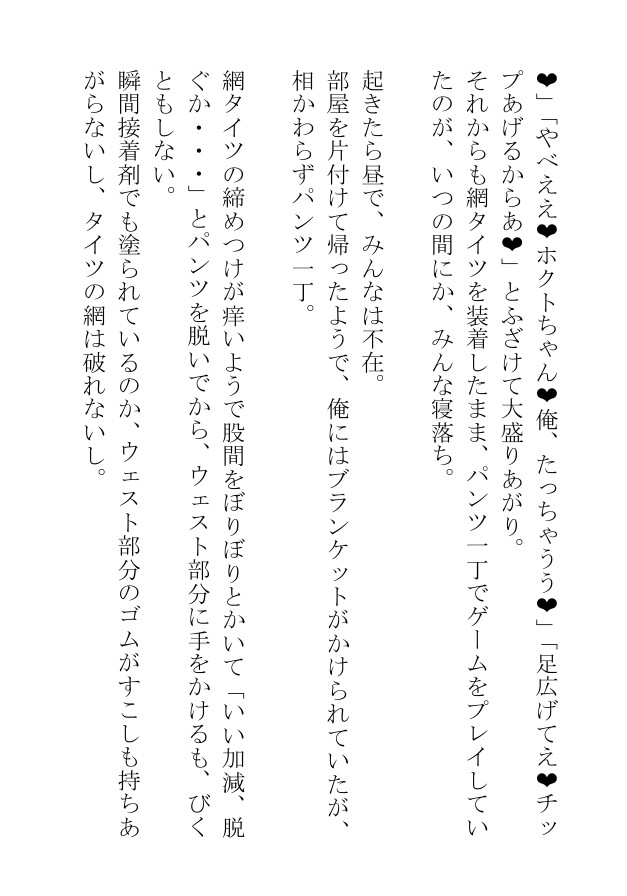 ❤」「やべええ❤ホクトちゃん❤俺、たっちゃうう❤」「足広げてえ❤チッ
プあげるからあ❤」とふざけて大盛りあがり。
それからも網タイツを装着したまま、パンツ一丁でゲームをプレイしてい
たのが、いつの間にか、みんな寝落ち。
起きたら昼で、みんなは不在。
部屋を片付けて帰ったようで、俺にはブランケットがかけられていたが、
相かわらずパンツ一丁。
網タイツの締めつけが痒いようで股間をぼりぼりとかいて「いい加減、脱
ぐか・・・」とパンツを脱いでから、ウェスト部分に手をかけるも、びく
ともしない。
瞬間接着剤でも塗られているのか、ウェスト部分のゴムがすこしも持ちあ
がらないし、タイツの網は破れないし。